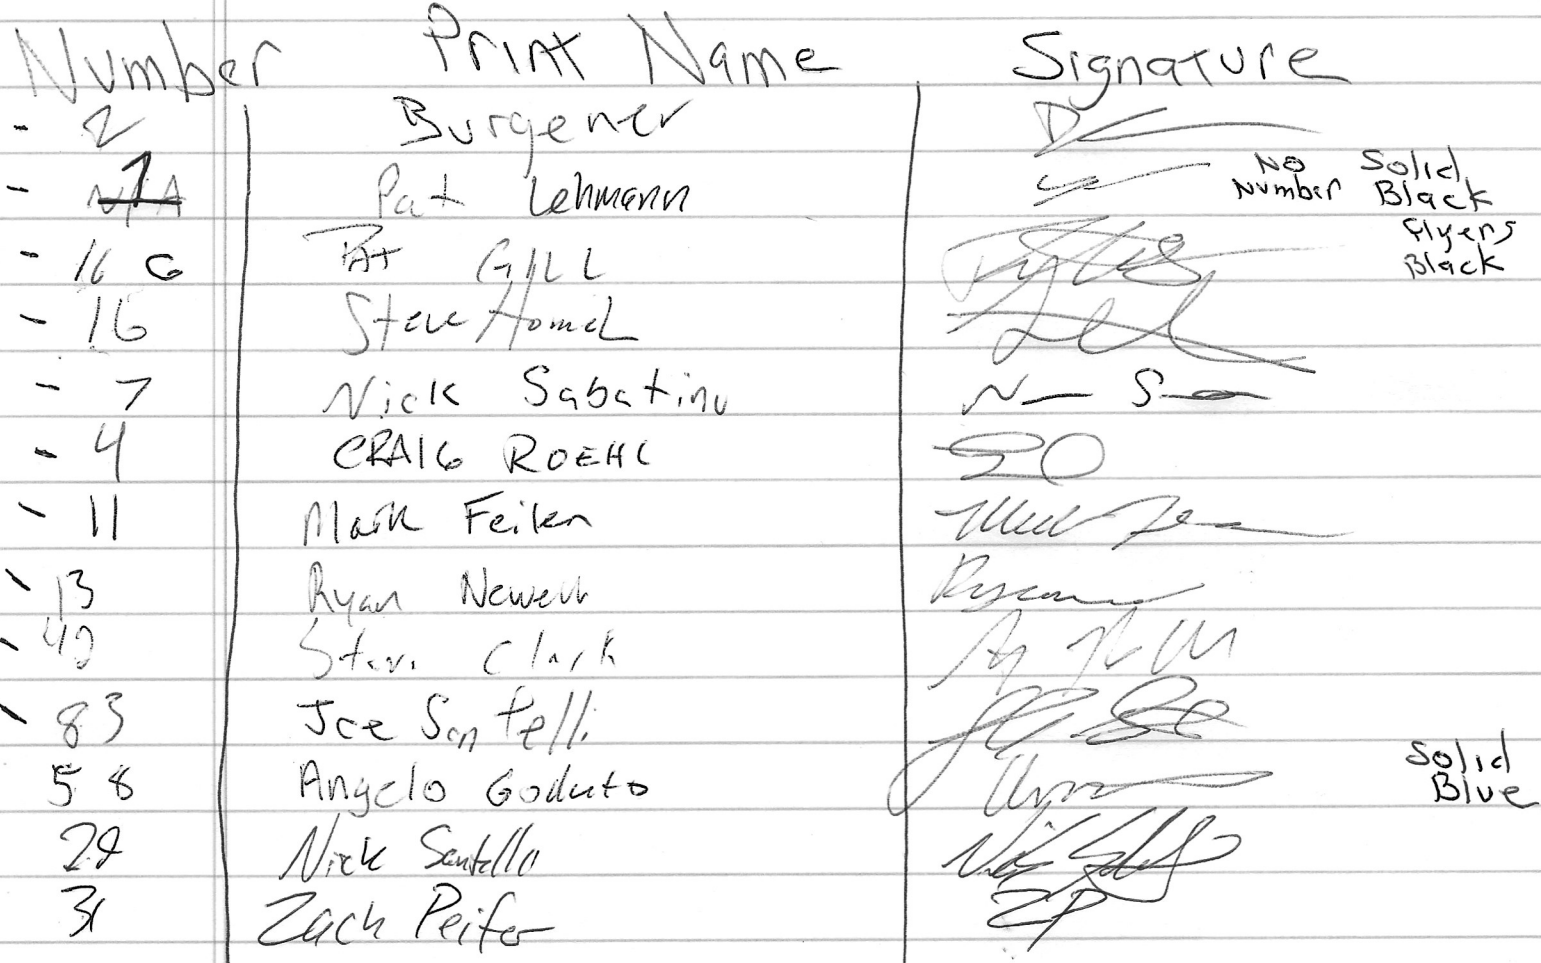 Number Print Name Signature
- 2 Burgener
- N/A 1 Pat Lehmann No Number Solid Black
- 16 G Pat GILL Flyers Black
- 16 Steve Homel
- 7 Nick Sabatino N S
- 4 CRAIG ROEHL
- 11 Mark Feiler
- 13 Ryan Newell Ryan
- 42 Steve Clark
- 83 Joe Santelli
58 Angelo Goduto Solid Blue
Nick Santello
31 Zach Peifer ZP